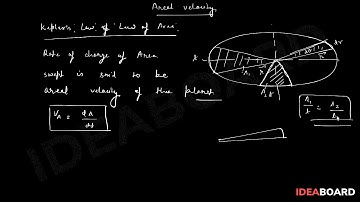 Areal velocity
Kepler's Law of Law of Area.
Rate of change of Area
swept is said to be
areal velocity of the planet
V_A = dA/dt
A₁/t = A₂/
IDEABOARD
IDEABOARD